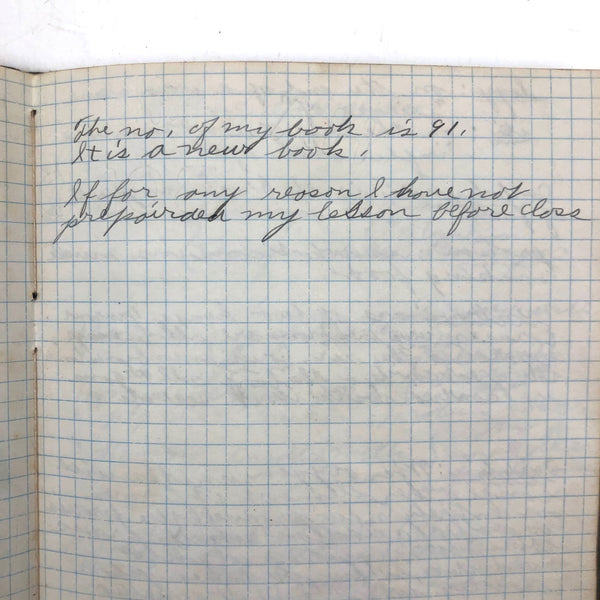 The no. of my book is 91.
It is a new book.
If for any reason I have not
prepairded my lesson before class